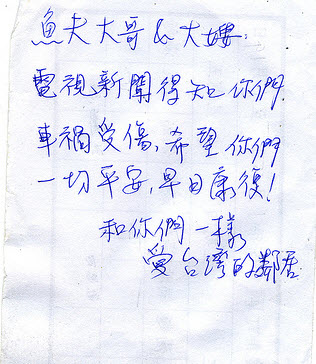 魚夫大哥 & 大嫂:
電視新聞得知你們
車禍受傷,希望你們
一切平安,早日康復!
和你們一樣
愛台灣的鄰居